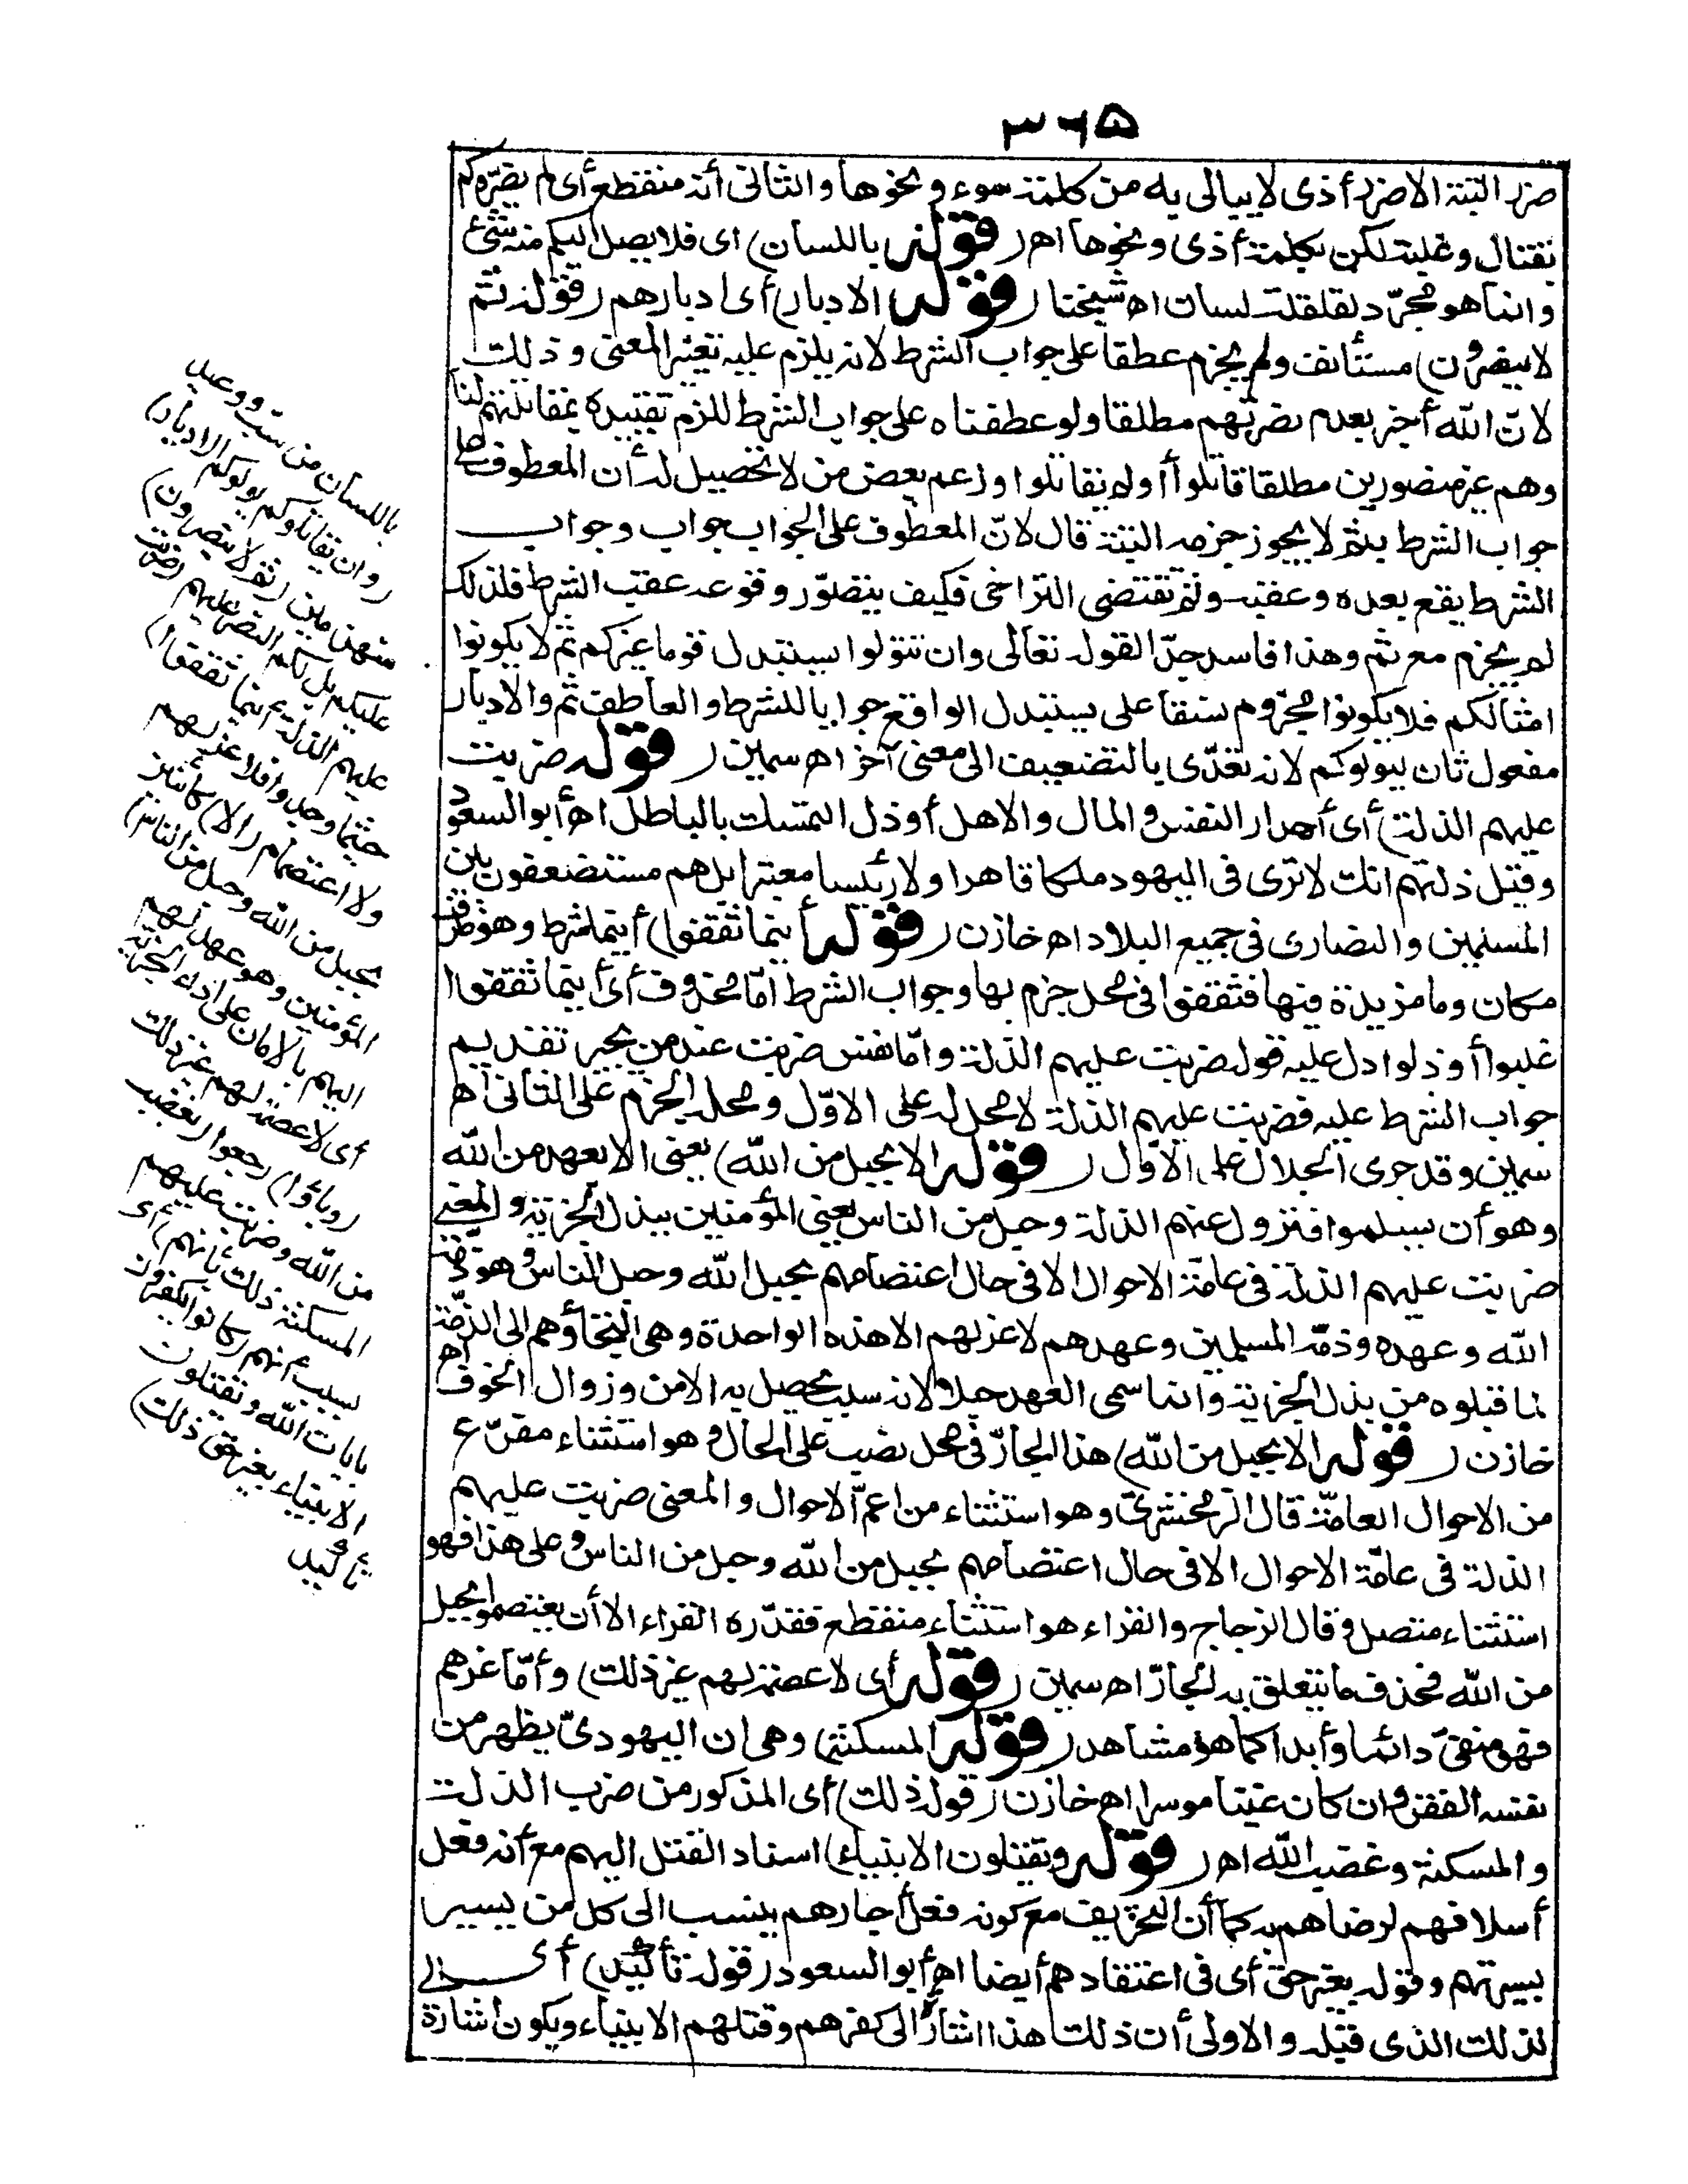 ٣٦٥
ضرر البتة الا ضرر أذى لا يبالى به من كلمة سوء ونحوها والثانى أنه منقطع أى لم يضرّوكم
بقتال وغلبة لكن بكلمة أذى ونحوها اهـ (قوله باللسان) اى فلا يصل اليكم منه شئ
وانما هو مجرّد لقلقلة لسان اهـ شيخنا (قوله الادبار) أى ادبارهم (قوله ثم
لا ينصرون) مستأنف ولم يجزم عطفا على جواب الشرط لانه يلزم عليه تغير المعنى وذلك
لانّ الله أخبر بعدم نصرتهم مطلقا ولو عطفناه على جواب الشرط للزم تقييده بمقاتلتهم لنا
وهم غير منصورين مطلقا قاتلوا أو لم يقاتلوا وزعم بعض من لا تحصيل له أن المعطوف على
جواب الشرط بثم لا يجوز جزمه البتة قال لانّ المعطوف على الجواب جواب وجواب
الشرط يقع بعده وعقبه وثم تقتضى التراخى فكيف يتصوّر وقوعه عقب الشرط فلذلك
لم يجزم مع ثم وهذا فاسد جدّا لقوله تعالى وان تتولوا يستبدل قوما غيركم ثم لا يكونوا
امثالكم فلا يكونوا مجزوم نسقا على يستبدل الواقع جوابا للشرط والعاطف ثم والادبار
مفعول ثان ليولوكم لانه تعدّى بالتضعيف الى معنى آخر اهـ سمين (قوله ضربت
عليهم الذلة) أى أهدار النفس والمال والاهل أو ذل التمسك بالباطل اهـ أبو السعود
وقيل ذلتهم انك لا ترى فى اليهود ملكا قاهرا ولا رئيسا معتبرا بل هم مستضعفون بين
المسلمين والنصارى فى جميع البلاد اهـ خازن (قوله أينما ثقفوا) أينما شرط وهو ظرف
مكان وما مزيدة فيها فثقفوا فى محل جزم بها وجواب الشرط امّا محذوف أى أينما ثقفوا
غلبوا أو ذلوا دل عليه قوله ضربت عليهم الذلة وامّا نفس ضربت عند من يجيز تقديم
جواب الشرط عليه فضربت عليهم الذلة لا محل له على الاوّل ومحله الجزم على الثانى اهـ
سمين وقد جرى الجلال على الاول (قوله الا بحبل من الله) يعنى الا بعهد من الله
وهو أن يسلموا فتزول عنهم الذلة وحبل من الناس يعنى المؤمنين ببذل الجزية والمعنى
ضربت عليهم الذلة فى عامّة الاحوال الا فى حال اعتصامهم بحبل الله وحبل الناس وهو ذمّة
الله وعهده وذمّة المسلمين وعهدهم لا عز لهم الا هذه الواحدة وهى التجاؤهم الى الذمّة
لما قبلوه من بذل الجزية وانما سمى العهد حبلا لانه سبب يحصل به الامن وزوال الخوف اهـ
خازن (قوله الا بحبل من الله) هذا الجارّ فى محل نصب على الحال وهو استثناء مفرّغ
من الاحوال العامّة قال الزمخشرىّ وهو استثناء من اعمّ الاحوال والمعنى ضربت عليهم
الذلة فى عامّة الاحوال الا فى حال اعتصامهم بحبل من الله وحبل من الناس وعلى هذا فهو
استثناء متصل وقال الزجاج والفراء هو استثناء منقطع فقدّره الفراء الا أن يعتصموا بحبل
من الله فحذف ما يتعلق به الجارّ اهـ سمين (قوله أى لا عصمة لهم غير ذلك) وأمّا عزهم
فهو منفىّ دائما وأبدا كما هو مشاهد (قوله المسكنة) وهى ان اليهودىّ يظهر من
نفسه الفقر وان كان غنيا موسرا اهـ خازن (قوله ذلك) أى المذكور من ضرب الذلة
والمسكنة وغضب الله اهـ (قوله ويقتلون الانبياء) اسناد القتل اليهم مع أنه فعل
أسلافهم لرضاهم به كما أن التحريف مع كونه فعل أحبارهم ينسب الى كل من يسير
بسيرتهم وقوله بغير حق أى فى اعتقادهم أيضا اهـ أبو السعود (قوله تأكيد) أى
لذلك الذى قبله والاولى أن ذلك هذا اشارة الى كفرهم وقتلهم الانبياء ويكون اشارة
باللسان من سب ووعيد
(وان يقاتلوكم يولوكم الادبار)
منهزمين (ثم لا ينصرون)
عليكم بل لكم النصر عليهم (ضربت
عليهم الذلة أينما ثقفوا)
حيثما وجدوا فلا عز لهم
ولا اعتصام (الا) كائنين
بحبل من الله وحبل من الناس)
المؤمنين وهو عهد لهم
اليهم بالامان على اداء الجزية
أى لا عصمة لهم غير ذلك
(وباؤا) رجعوا (بغضب
من الله وضربت عليهم
المسكنة ذلك بأنهم) أى
بسبب أنهم (كانوا يكفرون
بآيات الله ويقتلون
الانبياء بغير حق ذلك)
تأكيد